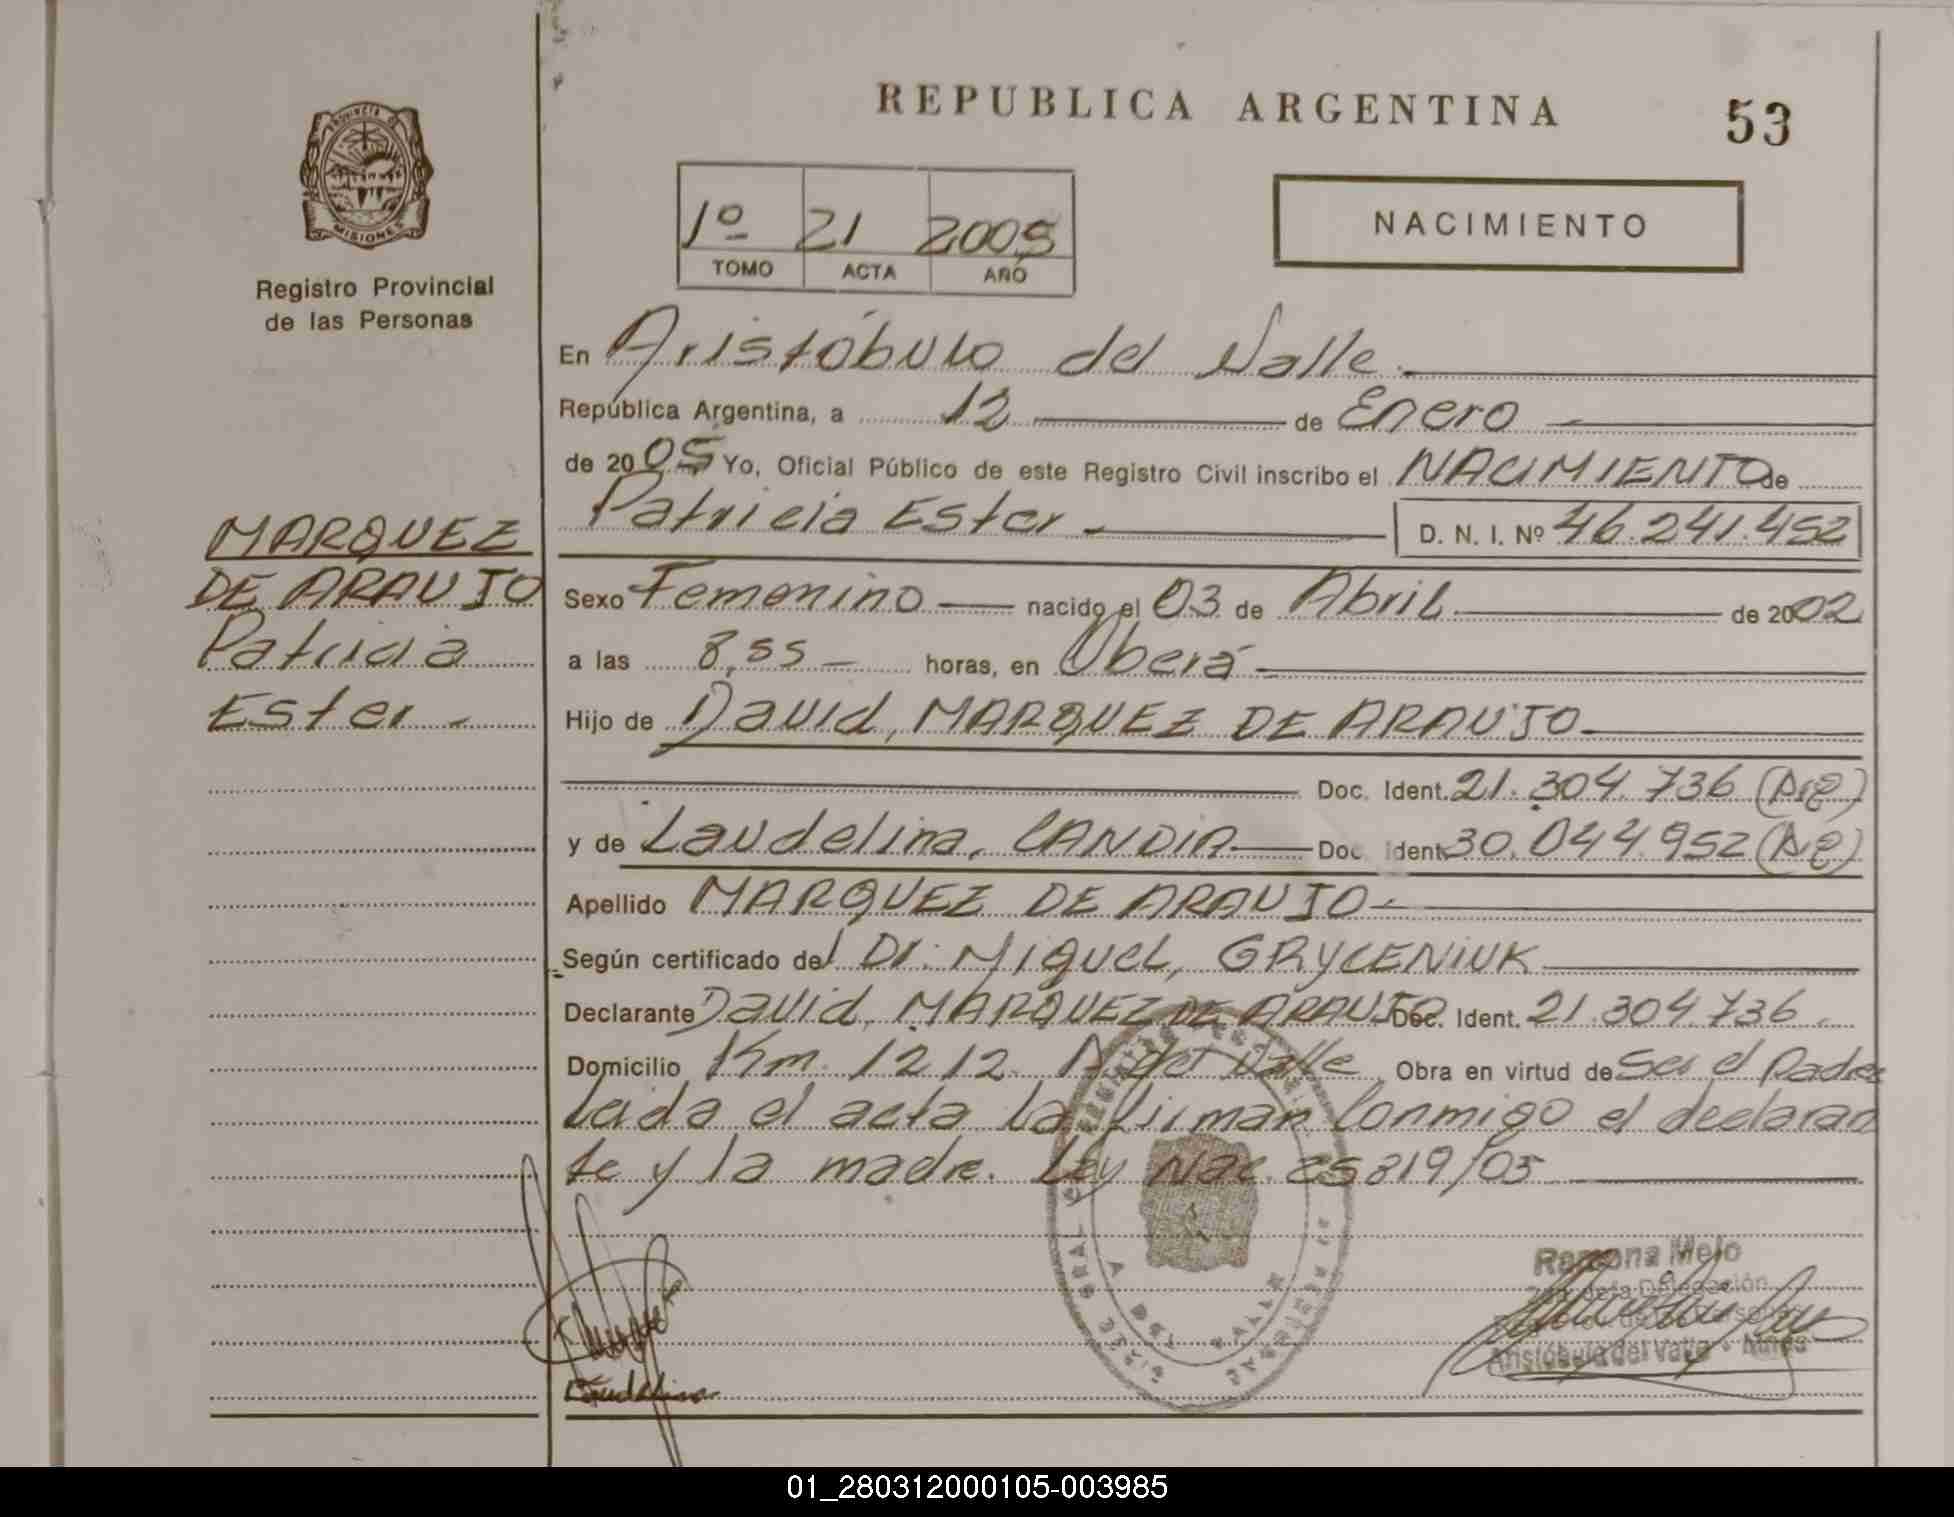 REPUBLICA ARGENTINA
53
PROVINCIA DE
MISIONES
Registro Provincial
de las Personas
1º 21 2005
TOMO ACTA AÑO
NACIMIENTO
En Aristóbulo del Valle.
República Argentina, a 12 de Enero
de 2005 Yo, Oficial Público de este Registro Civil inscribo el NACIMIENTO de
Patricia Ester D. N. I. Nº 46.241.452
MARQUEZ
DE ARAUJO
Patricia
Ester
Sexo Femenino nacido el 03 de Abril de 2002
a las 8,55 horas, en Oberá
Hijo de David, MARQUEZ DE ARAUJO
Doc. Ident. 21.304.736 (Arg)
y de Laudelina, CANDIA Doc. Ident. 30.044.952 (Arg)
Apellido MARQUEZ DE ARAUJO
Según certificado del Dr. Miguel, GRYCENIUK
Declarante David, MARQUEZ DE ARAUJO Doc. Ident. 21.304.736.
Domicilio Km. 1212. A. del Valle Obra en virtud de Ser el Padre
Leida el acta la firman Conmigo el declaran
te y la madre. Ley Nac. 25819/03
Ramona Melo
Delegación
Aristóbulo del Valle - Mnes
Laudelina
01_280312000105-003985